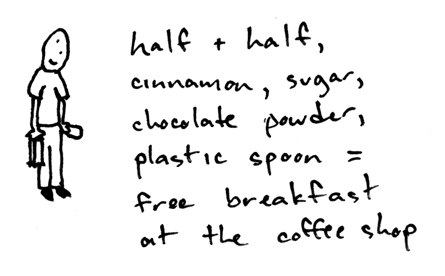 half + half,
cinnamon, sugar,
chocolate powder,
plastic spoon =
free breakfast
at the coffee shop